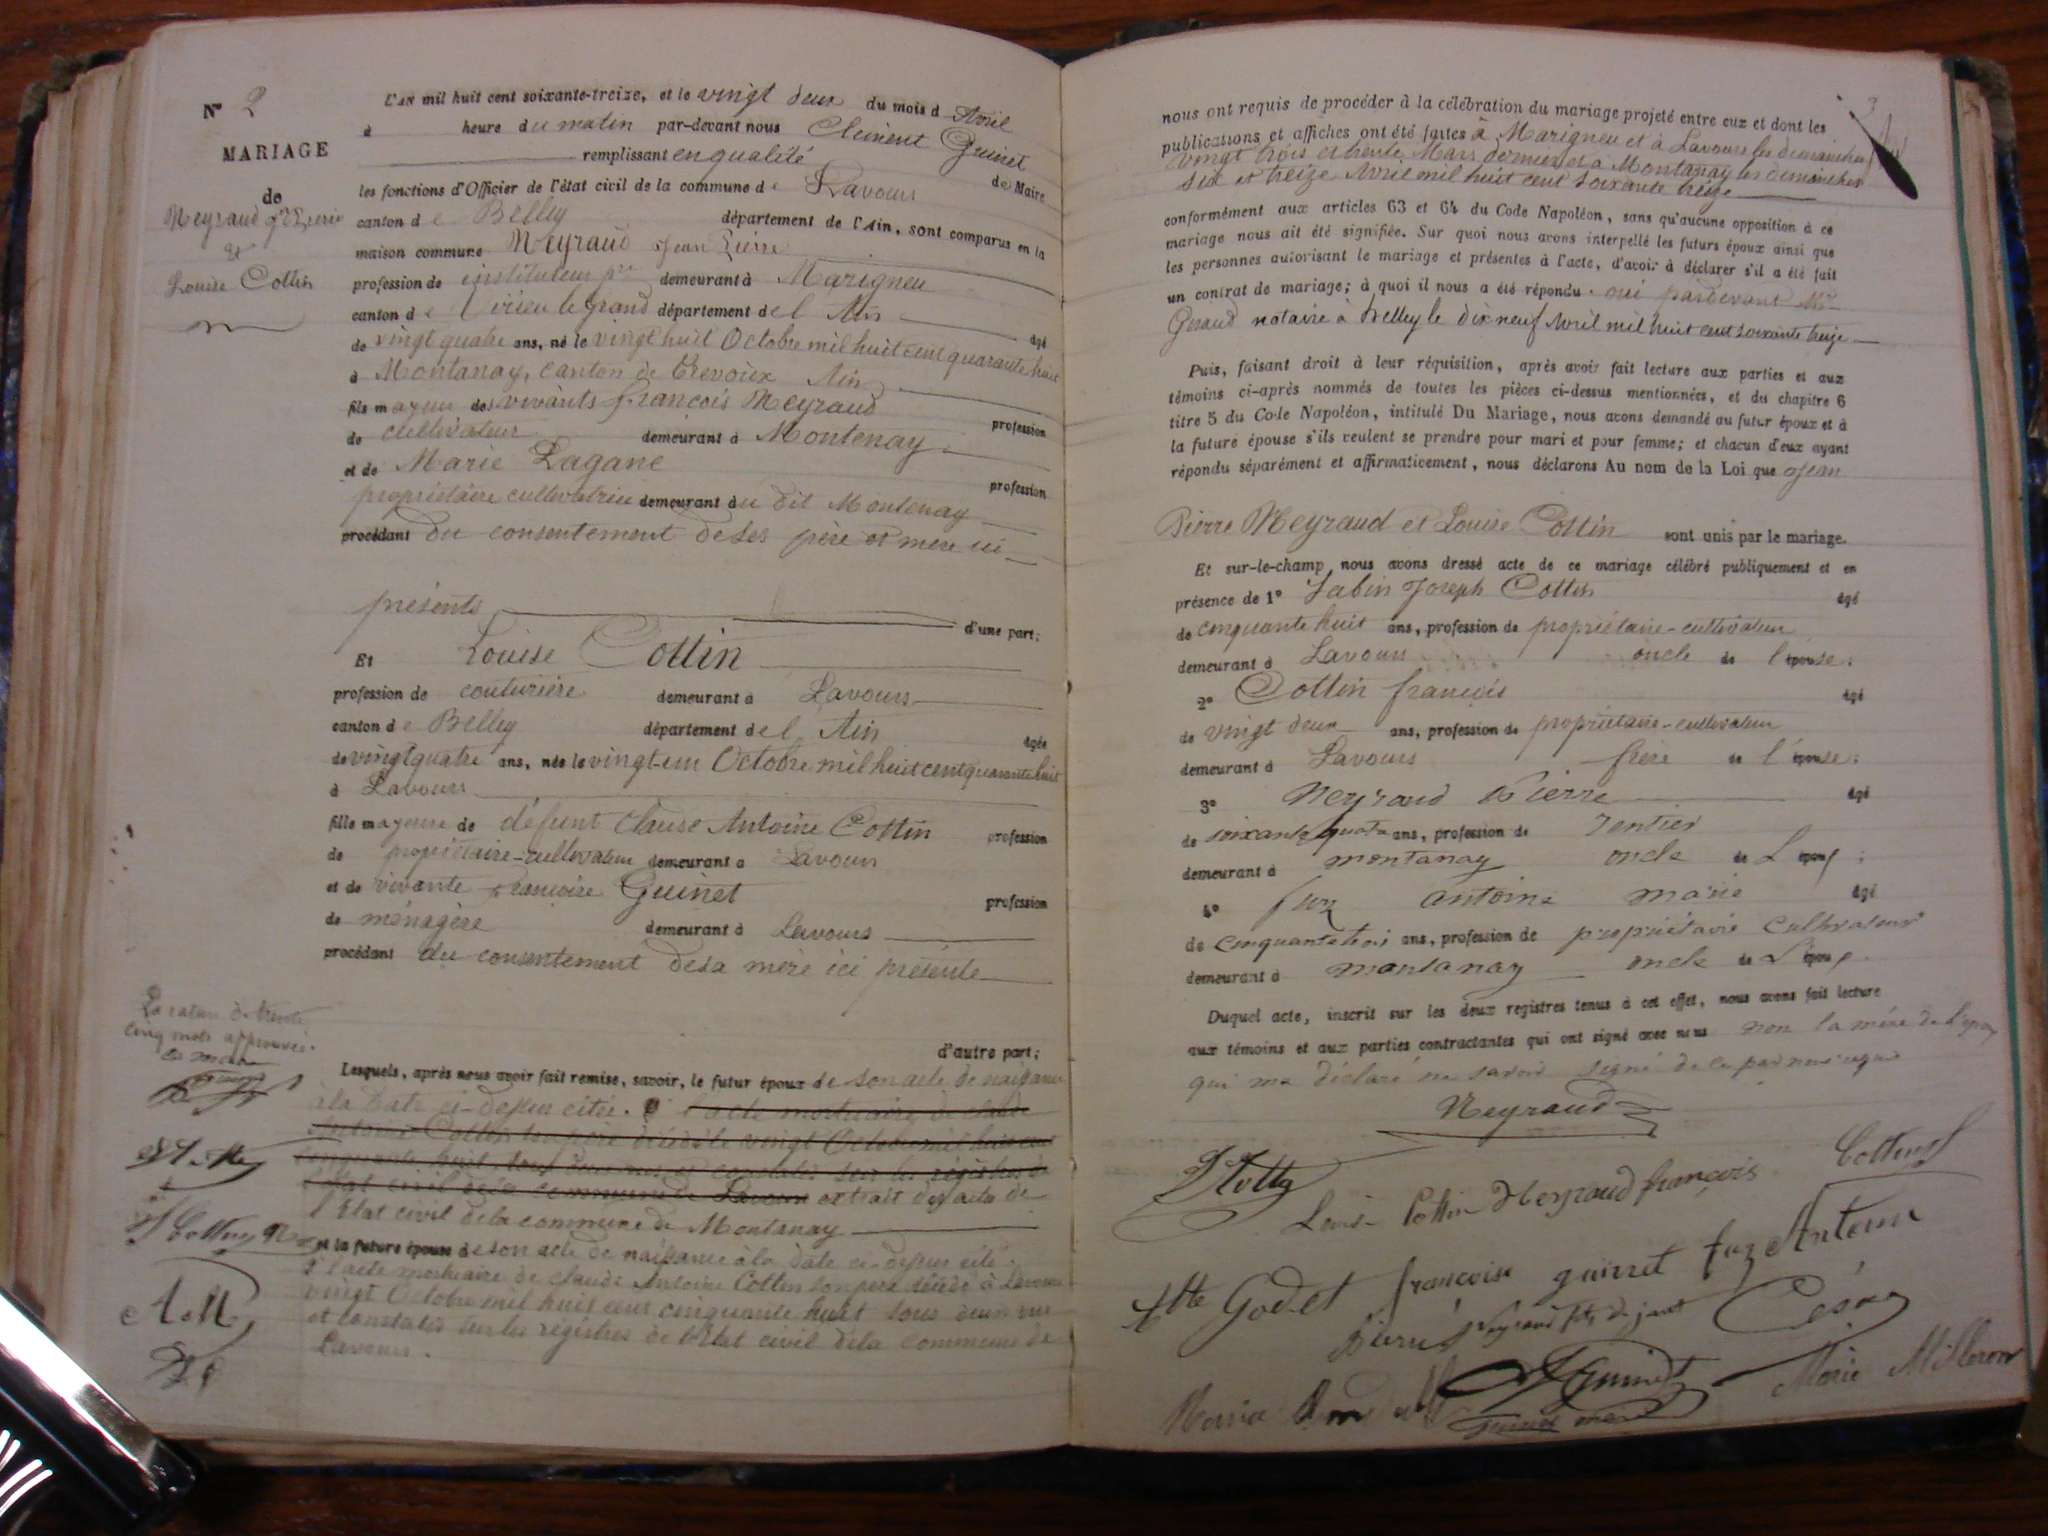 N° 2
MARIAGE
de
Neyraud Jn Pierre
Et
Louise Cottin
L'an mil huit cent soixante-treize, et le vingt deux du mois d Avril
à heure du matin par-devant nous Clément Guinet
remplissant en qualité de Maire
les fonctions d'Officier de l'état civil de la commune de Lavours
canton de Belley département de l'Ain, sont comparus en la
maison commune Neyraud Jean Pierre
profession de instituteur demeurant à Marignieu
canton de Virieu le grand département de l'Ain
âgé
de vingt quatre ans, né le vingt huit Octobre mil huit cent quarante huit
à Montanay, canton de Trevoux Ain
fils majeur des vivants françois Neyraud
profession
de cultivateur demeurant à Montenay
et de Marie Lagane
profession
propriétaire cultivatrice demeurant au dit Montenay
procédant du consentement de ses père et mère ici
présents
d'une part;
Et Louise Cottin
profession de couturière demeurant à Lavours
canton de Belley département de l'Ain
âgée
de vingt quatre ans, née le vingt-un Octobre mil huit cent quarante huit
à Lavours
fille majeure de défunt Claude Antoine Cottin profession
de propriétaire-cultivateur demeurant à Lavours
et de vivante françoise Guinet
profession
de ménagère demeurant à Lavours
procédant du consentement de sa mère ici présente
La rature de trente
cinq mots approuvée.
d'autre part;
Lesquels, après nous avoir fait remise, savoir, le futur époux de son acte de naissance
à la date ci-dessus citée. l'acte mortuaire de claude
Antoine Cottin son père décédé le vingt Octobre mil huit cent
cinquante huit, tous deux nus et constatés sur les régistres de
l'état civil de la commune de Lavours extrait des actes de
l'Etat civil de la commune de Montanay
et la future épouse de son acte de naissance à la date ci-dessus cité.
l'acte mortuaire de claude Antoine Cottin son père décédé à Lavours
vingt Octobre mil huit cent cinquante huit tous deux nus
et constatés sur les régistres de l'état civil de la commune de
Lavours.
nous ont requis de procéder à la célébration du mariage projeté entre eux et dont les
publications et affiches ont été faites à Marignieu et à Lavours les dimanches
vingt trois et trente Mars dernier et à Montanay les dimanches
six et treize Avril mil huit cent soixante treize
conformément aux articles 63 et 64 du Code Napoléon, sans qu'aucune opposition à ce
mariage nous ait été signifiée. Sur quoi nous avons interpellé les futurs époux ainsi que
les personnes autorisant le mariage et présentes à l'acte, d'avoir à déclarer s'il a été fait
un contrat de mariage; à quoi il nous a été répondu oui pardevant Me
Guraud notaire à Belley le dix neuf Avril mil huit cent soixante treize
Puis, faisant droit à leur réquisition, après avoir fait lecture aux parties et aux
témoins ci-après nommés de toutes les pièces ci-dessus mentionnées, et du chapitre 6
titre 5 du Code Napoléon, intitulé Du Mariage, nous avons demandé au futur époux et à
la future épouse s'ils veulent se prendre pour mari et pour femme; et chacun d'eux ayant
répondu séparément et affirmativement, nous déclarons Au nom de la Loi que Jean
Pierre Neyraud et Louise Cottin sont unis par le mariage.
Et sur-le-champ nous avons dressé acte de ce mariage célébré publiquement et en
présence de 1° Sabin Joseph Cottin âgé
de cinquante huit ans, profession de propriétaire-cultivateur
demeurant à Lavours oncle de l'épouse;
2° Cottin françois âgé
de vingt deux ans, profession de propriétaire-cultivateur
demeurant à Lavours frère de l'épouse;
3° Neyraud Pierre âgé
de soixante quatre ans, profession de rentier
demeurant à montanay oncle de L'époux;
4° fuz antoine marie âgé
de cinquante trois ans, profession de propriétaire cultivateur
demeurant à montanay oncle de L'époux.
Duquel acte, inscrit sur les deux registres tenus à cet effet, nous avons fait lecture
aux témoins et aux parties contractantes qui ont signé avec nous non la mère de l'époux
qui ma déclaré ne savoir signé de ce par nous requis
Neyraud
Louise Cottin Neyraud françois Cottin
Godet françoise guinet fuz Antoine
Guinet maire Marie Milleron